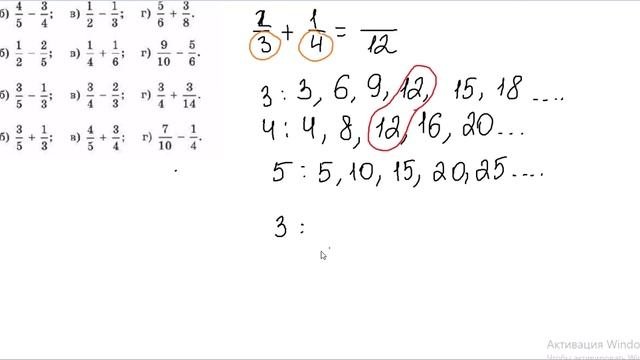 б) 4/5 − 3/4; в) 1/2 − 1/3; г) 5/6 + 3/8.
б) 1/2 − 2/5; в) 1/4 + 1/6; г) 9/10 − 5/6.
б) 3/5 − 1/3; в) 3/4 − 2/3; г) 3/4 + 3/14.
б) 3/5 + 1/3; в) 4/5 + 3/4; г) 7/10 − 1/4.
1/3 + 1/4 = /12
3 : 3, 6, 9, 12, 15, 18 ....
4 : 4, 8, 12, 16, 20 ...
5 : 5, 10, 15, 20, 25 ....
3 :
Активация Windo
Чтобы активировать Wi